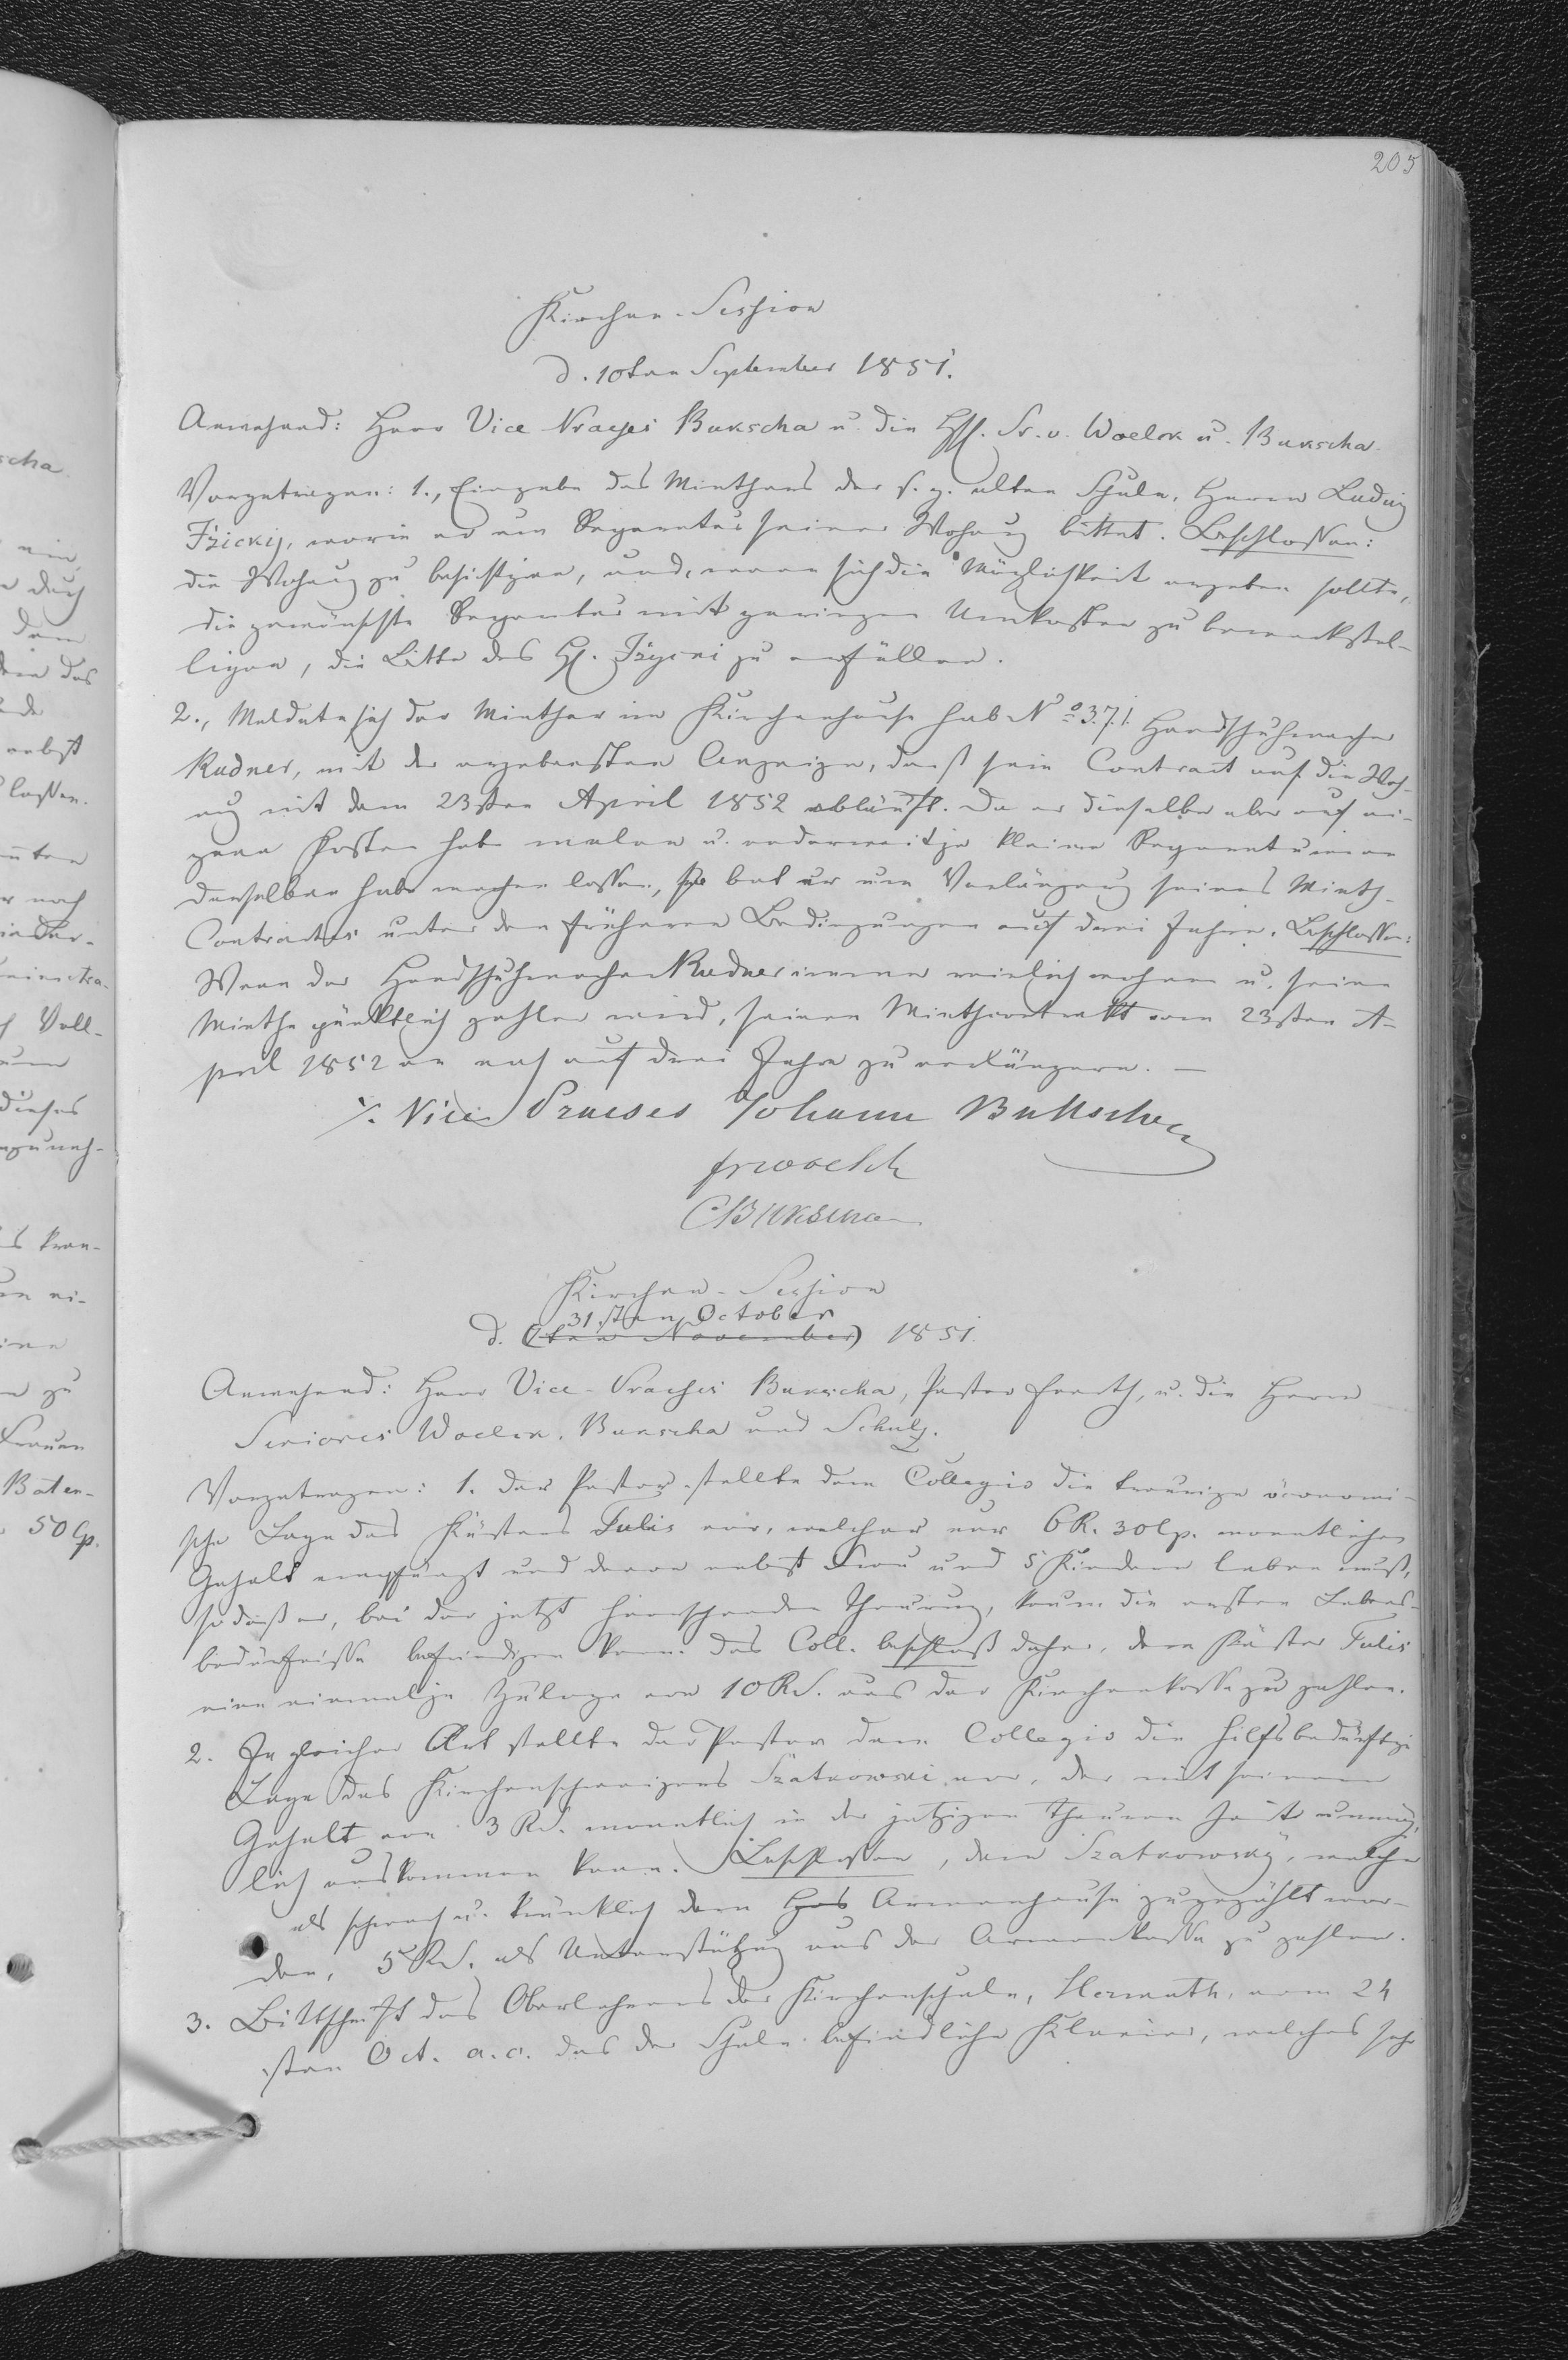 205
Kirchen-Session
d. 10ten September 1851.
Anwesend: Herr Vice Praeses Bukscha u. die HH. Sr. v. Woelck u. Bukscha.
Vorgetragen: 1., Eingabe des Miethers der s. g. alten Schule, Herrn Ludwig
Iżickij, worin er um Reparatur seiner Wohnung bittet. Beschlossen:
die Wohnung zu besichtigen, und, wenn sich die Möglichkeit ergeben sollte,
die gewünschte Reparatur mit geringen Unkosten zu bewerkstel-
ligen, die Bitte des H. Iżycki zu erfüllen.
2., Meldete sich der Miether im Kirchenhause sub No 371. Handschuhmacher
Rudner, mit der ergebensten Anzeige, dass sein Contract auf die Woh-
nung mit dem 23sten April 1852 abläuft. Da er dieselbe aber auf ei-
gene Kosten habe malen u. anderweitige kleine Reparaturen in
derselben habe machen lassen, so bat er um Verlängerung seines Mieth-
Contractes unter den früheren Bedingungen auf drei Jahre. Beschlossen:
Wenn der Handschuhmacher Rudner immer reinlich wohnen u. seine
Miethe pünktlich zahlen wird, seinen Miethcontrakt vom 23sten A-
pril 1852 an noch auf drei Jahre zu verlängern. —
Vice Praeses Johann Bukscha
frwoelck
CBukscha
Kirchen-Session
31sten October
d. (ten November) 1851.
Anwesend: Herr Vice-Praeses Bukscha, Pastor , u. die Herrn
Seniores Woelck, Bukscha und Schulz.
Vorgetragen: 1. Der Pastor stellte dem Collegio die traurige öconomi-
sche Lage des Küsters Tulis vor, welcher nur 6 R. 30 Cp. monatlichen
Gehalt empfängt und davon nebst Frau und 5 Kindern leben muss,
so dass er, bei der jetzt herrschenden Theurung, kaum die ersten Lebens-
bedürfnisse befriedigen kann. Das Coll. beschloss daher, dem Küster Tulis
eine einmalige Zulage von 10 R.S. aus der Kirchenkasse zu zahlen.
2. In gleicher Art stellte der Pastor dem Collegio die hilfsbedürftige
Lage des Kirchenschweizers Szatkowski vor, der mit seinem
Gehalt von 3 R.S. monatlich in der jetzigen theuren Zeit unmög-
lich auskommen kann. Beschlossen, dem Szatkowskij, welcher
als schwach u. kränklich dem Armenhause zugezählt wor-
den, 5 R.S. als Unterstützung aus der Armenkasse zu zahlen.
3. Bittschrift des Oberlehrers der Kirchenschule, Hermuth, vom 24
sten Oct. a. c. das der Schule befindliche Klavier, welches sehr